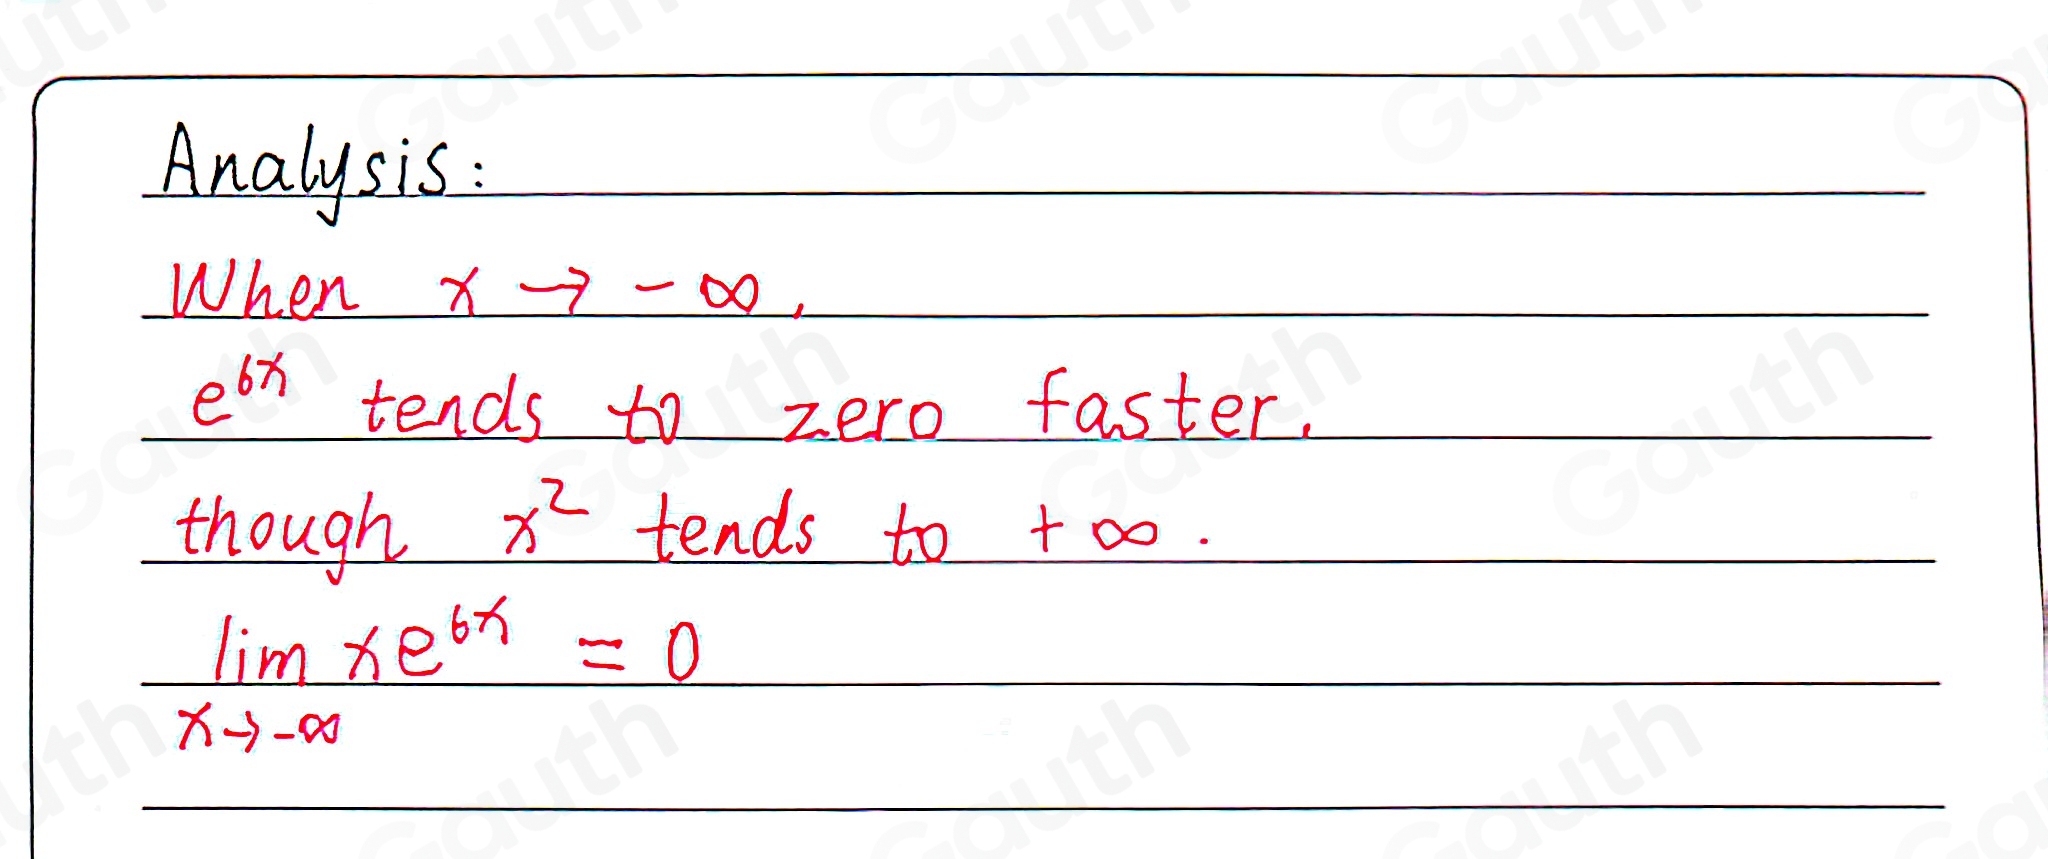 Analysis:
When x → -∞,
e^{6x} tends to zero faster,
though x² tends to +∞.
lim xe^{6x} = 0
x→-∞